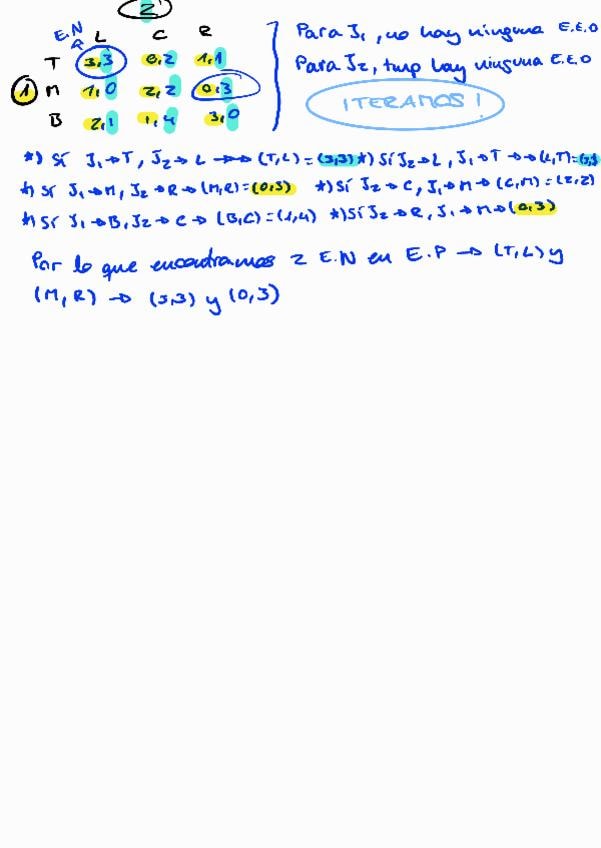 2
E.N L C R
T 3,3 0,2 1,1
1 M 1,0 2,2 0,3
B 2,1 1,4 3,0
Para J1, no hay ninguna E.E.O
Para J2, tmp hay ninguna E.E.O
¡ITERAMOS!
*) Sí J1→T, J2→L →→ (T,L)=(3,3) *) Sí J2→L, J1→T →→ (L,T)=(3,3)
*) Sí J1→M, J2→R→(M,R)=(0,3) *) Sí J2→C, J1→M→(C,M)=(2,2)
*) Sí J1→B, J2→C→(B,C)=(1,4) *) Sí J2→R, J1→M→(0,3)
Por lo que encontramos 2 E.N en E.P → (T,L) y
(M,R) → (3,3) y (0,3)